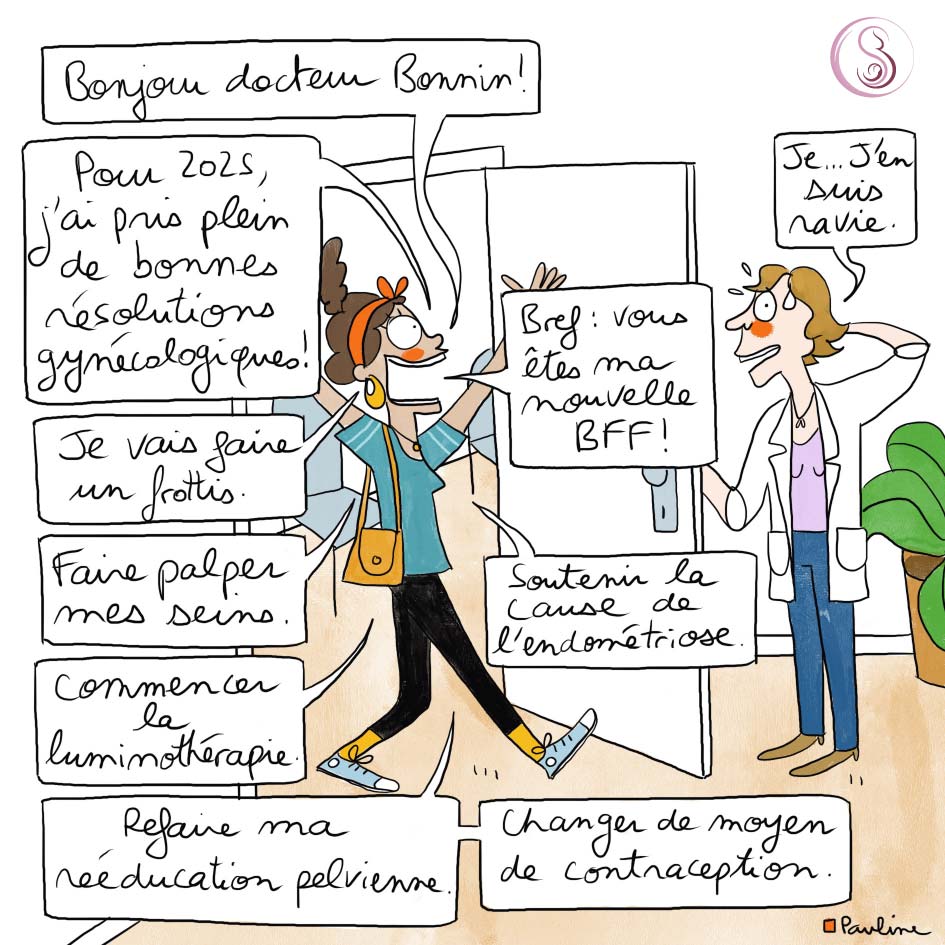 Bonjour docteur Bonnin!
Pour 2025,
j'ai pris plein
de bonnes
résolutions
gynécologiques!
Je vais faire
un frottis.
Faire palper
mes seins.
Commencer
la
luminothérapie.
Refaire ma
rééducation pelvienne.
Changer de moyen
de contraception.
Soutenir la
cause de
l'endométriose.
Bref : vous
êtes ma
nouvelle
BFF!
Je... J'en
suis
ravie.
Pauline